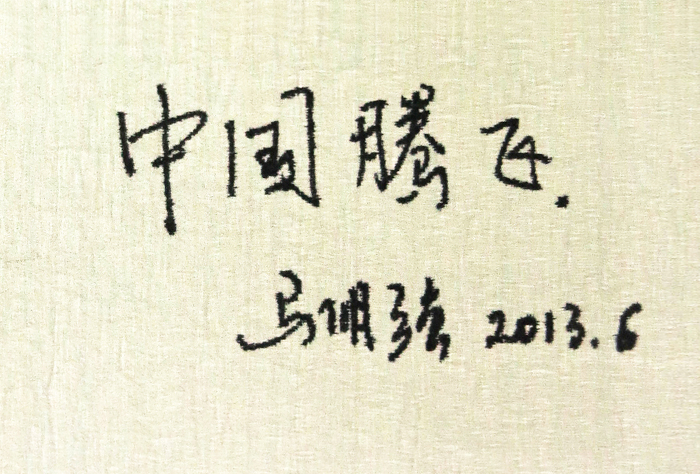 中国腾飞.
马明强 2013.6